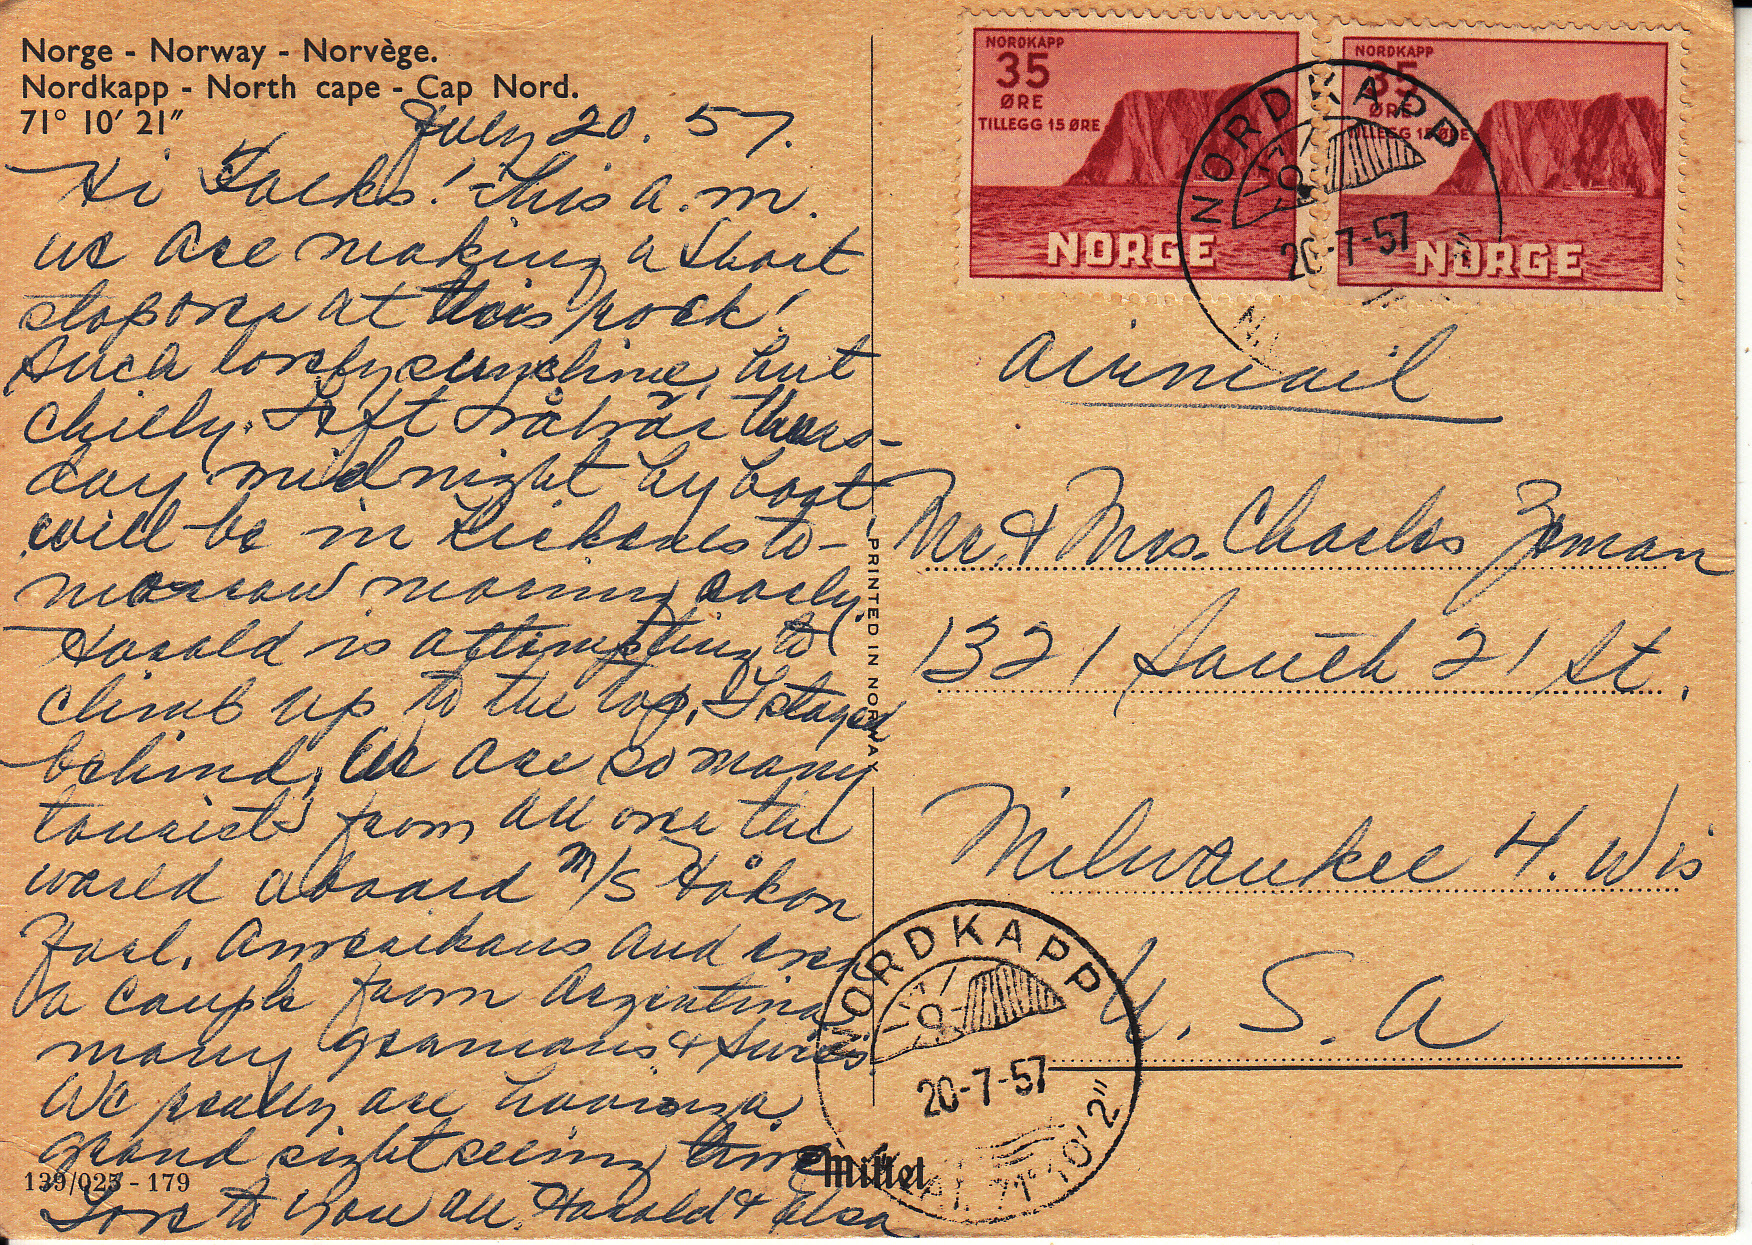 Norge - Norway - Norvège.
Nordkapp - North cape - Cap Nord.
71° 10′ 21″
July 20. 57.
Hi Folks! This a.m.
we are making a short
stopover at this rock!
Such lovely sunshine, but
chilly. Left Thurs-
day midnight by boat
will be in Kirkenes to-
morrow morning early.
Harald is attempting to
climb up to the top, I stayed
behind, We are so many
tourists from all over the
world aboard M/S Håkon
Jarl. Amerikans and even
a couple from Argentina
many Germans & Swiss
We really are having a
grand sightseeing time
139/025 - 179
Love to you all. Harald & Elsa
PRINTED IN NORWAY
Mittet
NORDKAPP
35
ØRE
TILLEGG 15 ØRE
NORGE
NORDKAPP
35
ØRE
TILLEGG 15 ØRE
NORGE
NORDKAPP
20-7-57
airmail
Mr. & Mrs. Charles Zeman
1321 South 21 St.
Milwaukee 4. Wis
U. S. A
NORDKAPP
20-7-57
71° 10' 2"